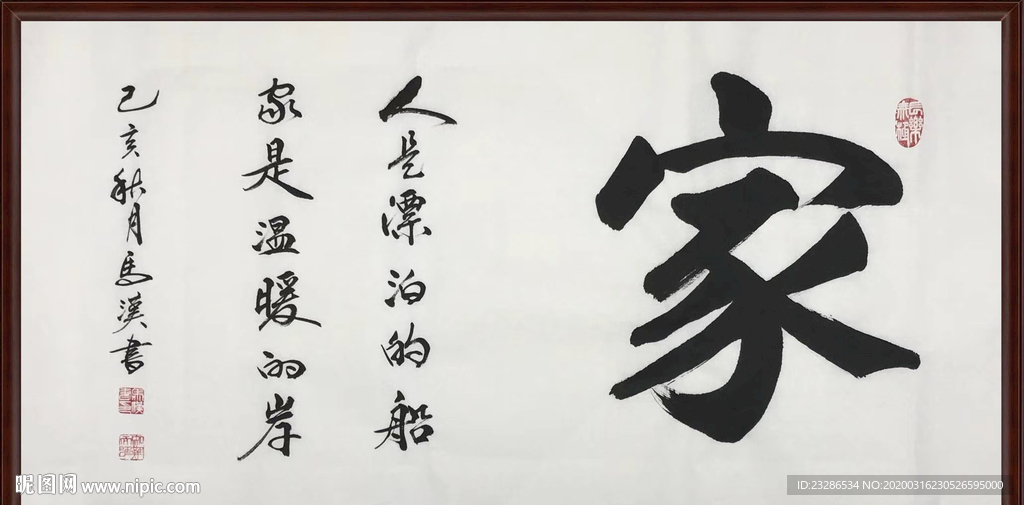 家
人是漂泊的船
家是温暖的岸
己亥秋月馬漢書
昵图网 www.nipic.com
ID:23286534 NO:20200316230526595000